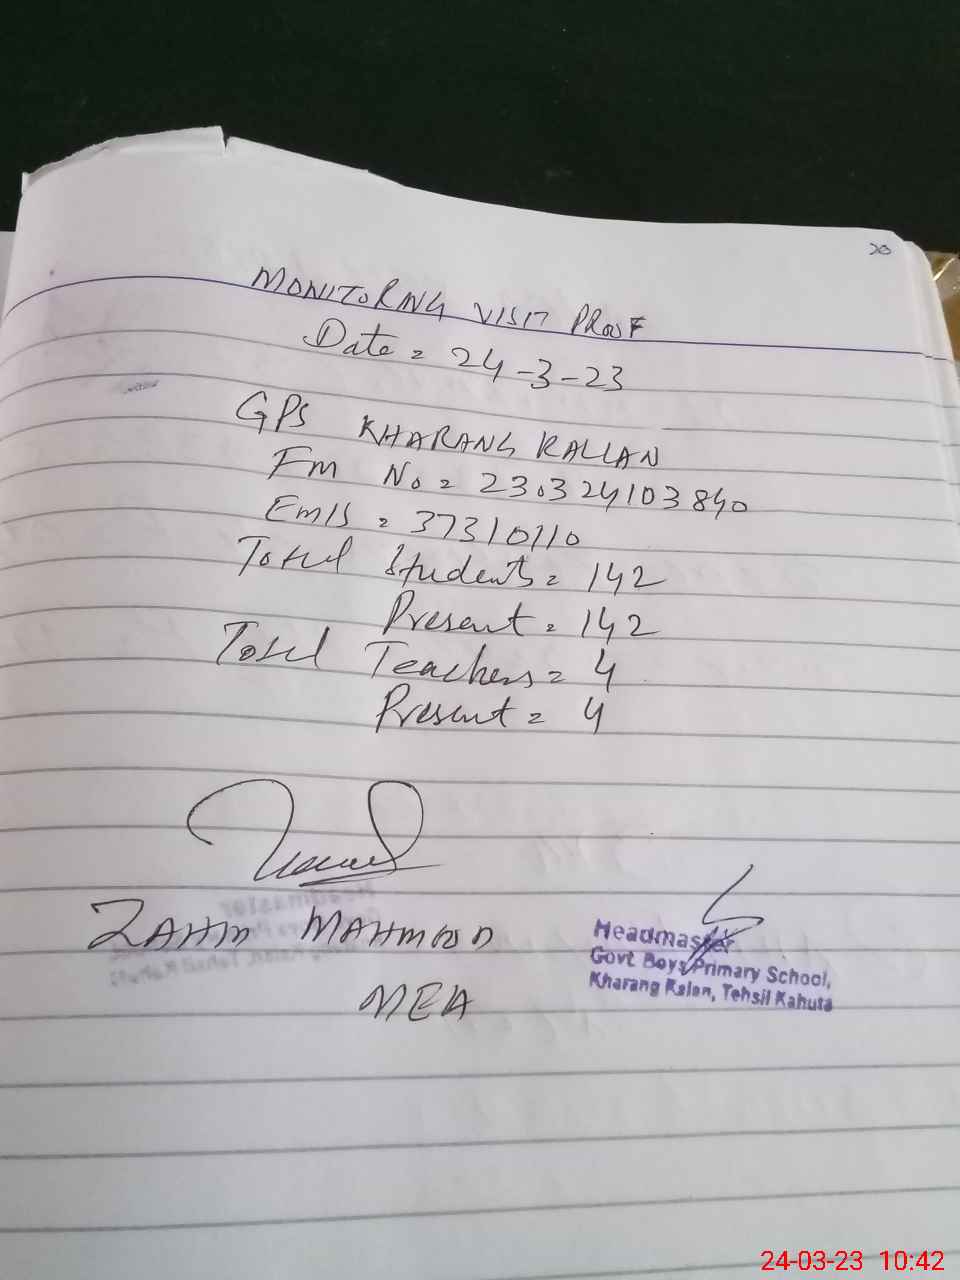 20
MONITORNG VISIT PROOF
Date = 24-3-23
GPS KHARANG KALLAN
Fm No = 230324103840
Emis = 37310110
Total Students = 142
Present = 142
Total Teachers = 4
Present = 4
ZAHID MAHMOOD
MEA
Headmaster
Govt Boys Primary School,
Kharang Kalan, Tehsil Kahuta
24-03-23 10:42